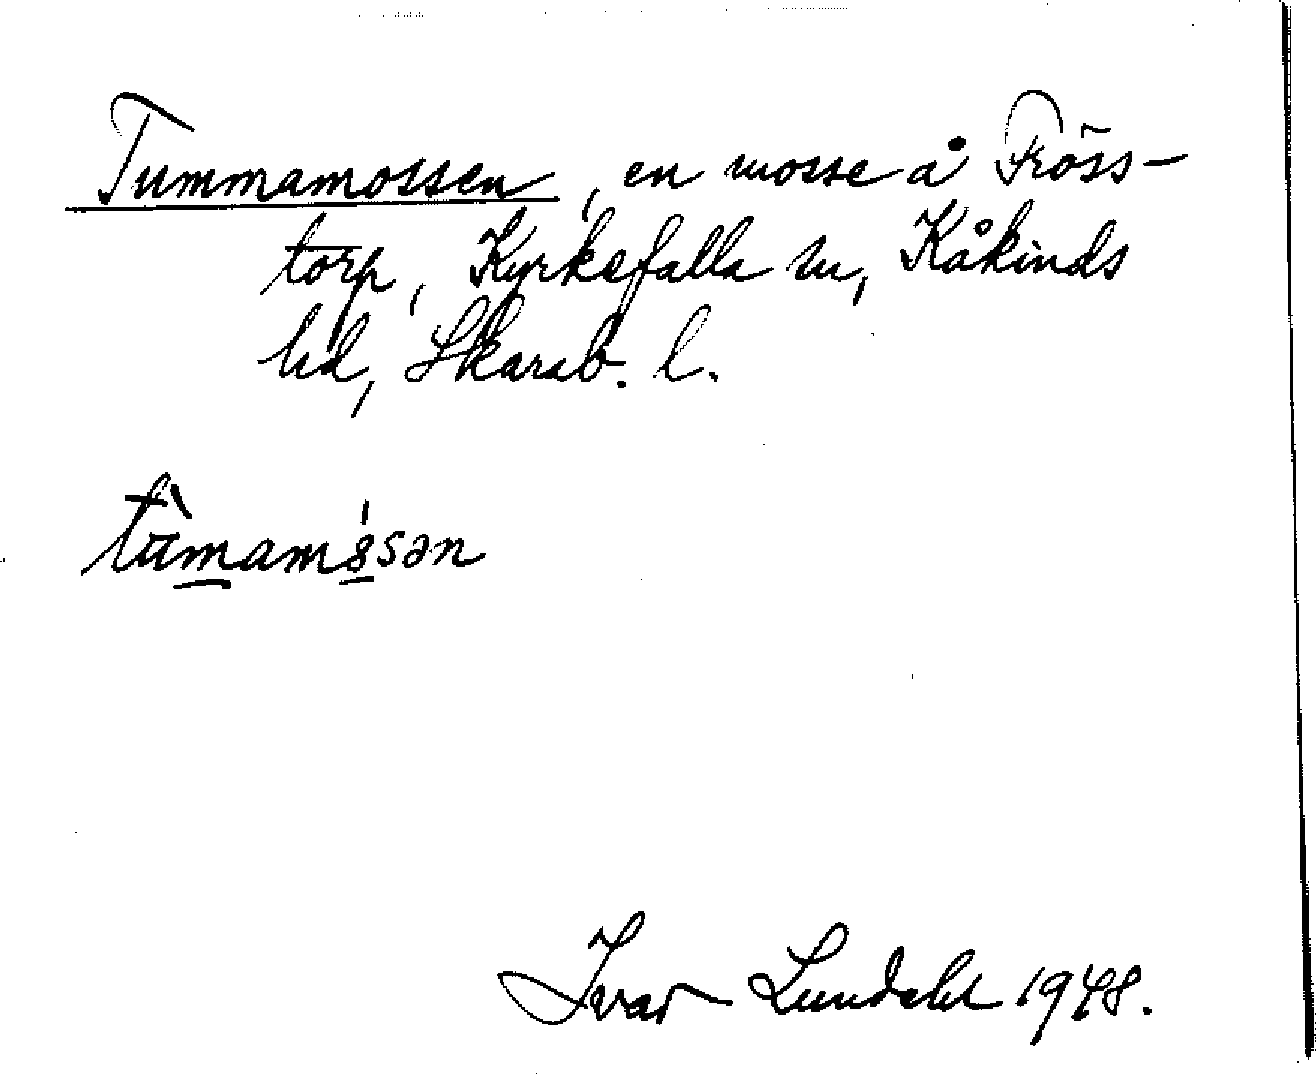 Tummamossen, en mosse å Fröss-
torp, Kyrkefalla sn, Kåkinds
hd, Skarab. l.
Ivar Lundahl 1948.